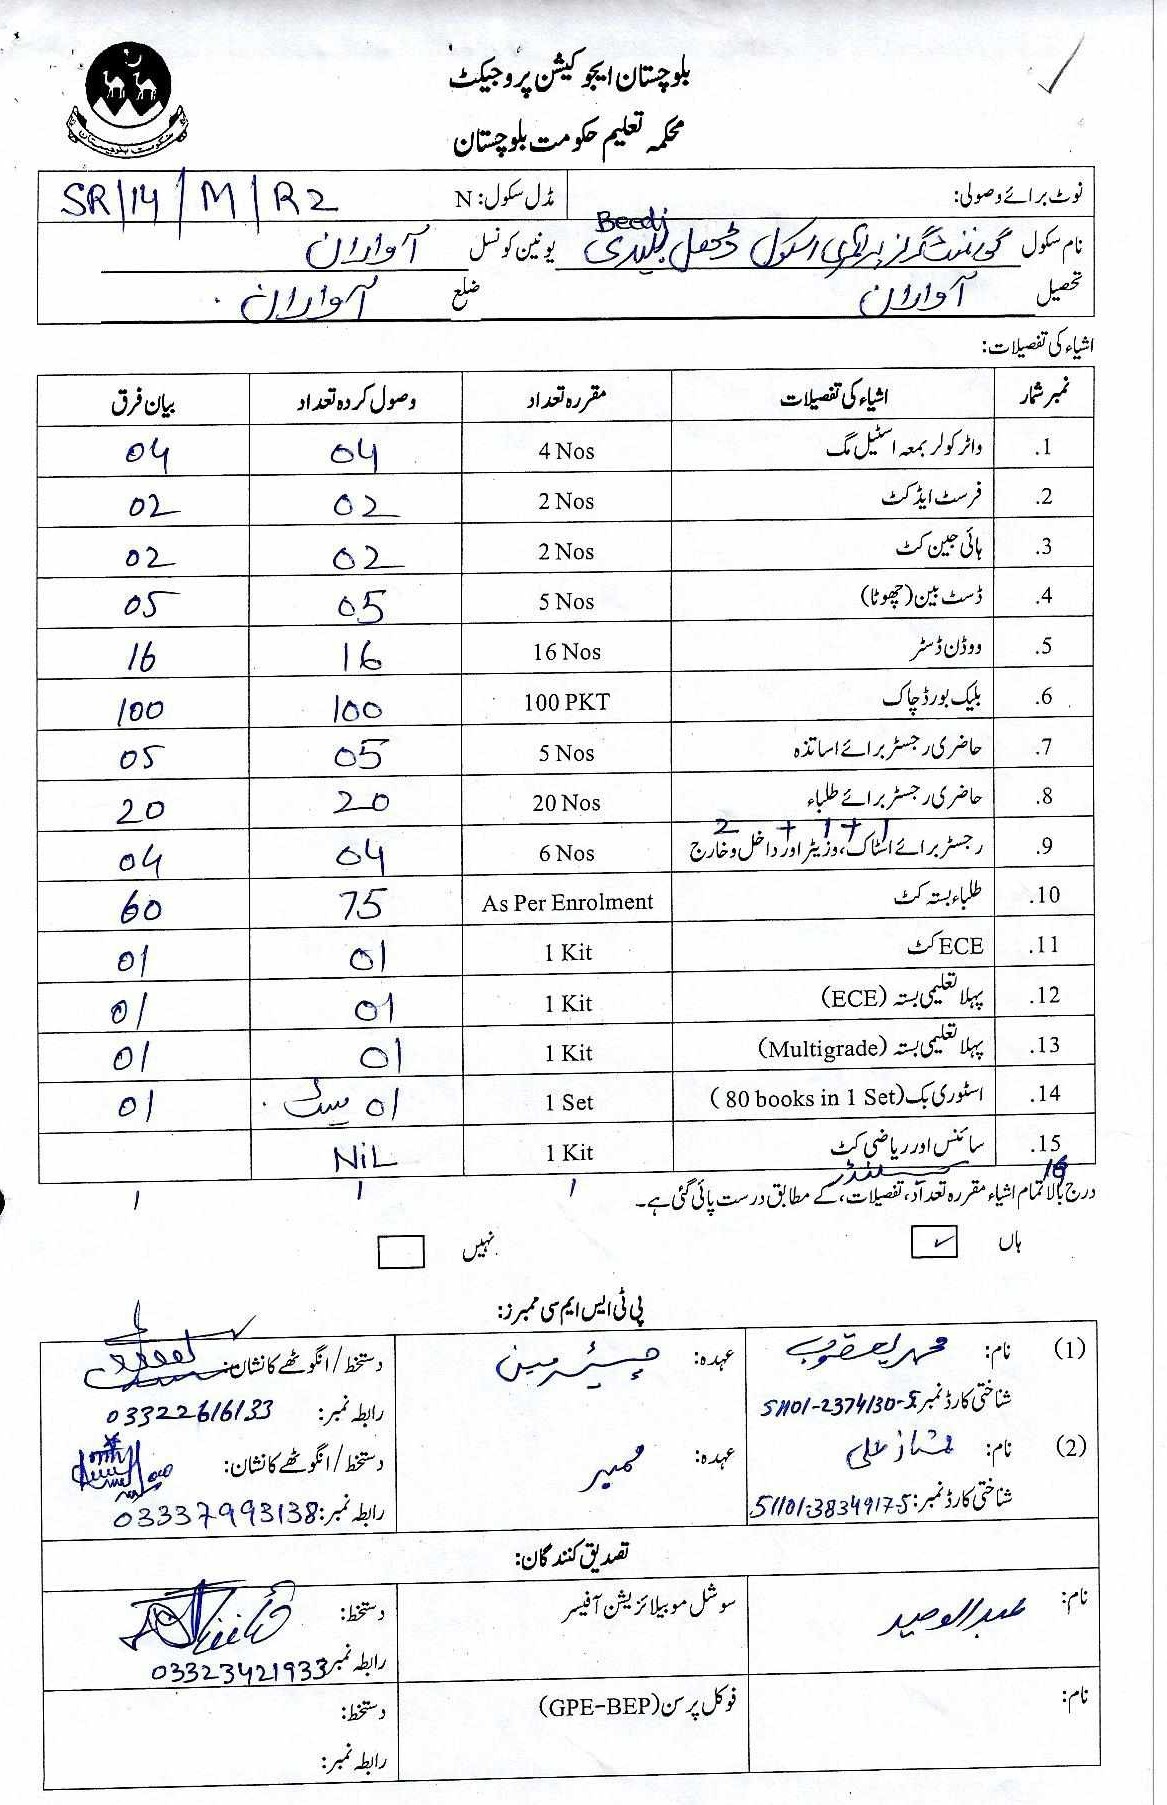 بلوچستان ایجوکیشن پروجیکٹ
محکمہ تعلیم حکومت بلوچستان
حکومت بلوچستان
نوٹ برائے وصولی: مڈل سکول: N SR/14/M/R2
Beedi
نام سکول گورنمنٹ گرلز پرائمری اسکول ڈھل بیدی یونین کونسل آواران
تحصیل آواران ضلع آواران
اشیاء کی تفصیلات:
نمبر شمار اشیاء کی تفصیلات مقررہ تعداد وصول کردہ تعداد بیان فرق
1. واٹر کولر بمعہ اسٹیل مگ 4 Nos 04 04
2. فرسٹ ایڈ کٹ 2 Nos 02 02
3. ہائی جین کٹ 2 Nos 02 02
4. ڈسٹ بین (چھوٹا) 5 Nos 05 05
5. ووڈن ڈسٹر 16 Nos 16 16
6. بلیک بورڈ چاک 100 PKT 100 100
7. حاضری رجسٹر برائے اساتذہ 5 Nos 05 05
8. حاضری رجسٹر برائے طلباء 20 Nos 20 20
2 + 1 + 1
9. رجسٹر برائے اسٹاک، وزیٹر اور داخل و خارج 6 Nos 04 04
10. طلباء بستہ کٹ As Per Enrolment 75 60
11. ECE کٹ 1 Kit 01 01
12. پہلا تعلیمی بستہ (ECE) 1 Kit 01 01
13. پہلا تعلیمی بستہ (Multigrade) 1 Kit 01 01
14. اسٹوری بک (80 books in 1 Set) 1 Set 01 سیٹ 01
15. سائنس اور ریاضی کٹ 1 Kit NiL
16 1 1 1
درج بالا تمام اشیاء مقررہ تعداد، تفصیلات، کے مطابق درست پائی گئی ہے۔
ہاں ✓ نہیں
پی ٹی ایس ایم سی ممبرز:
(1) نام: محمد یعقوب عہدہ: چیئرمین دستخط/انگوٹھے کا نشان:
شناختی کارڈ نمبر: 51101-2374130-5 رابطہ نمبر: 03322616133
(2) نام: ممتاز علی عہدہ: ممبر دستخط/انگوٹھے کا نشان:
شناختی کارڈ نمبر: 51101-3834917-5 رابطہ نمبر: 03337993138
تصدیق کنندگان:
نام: عبدالوحید سوشل موبیلائزیشن آفیسر دستخط:
رابطہ نمبر 03323421933
نام: فوکل پرسن (GPE-BEP) دستخط:
رابطہ نمبر: